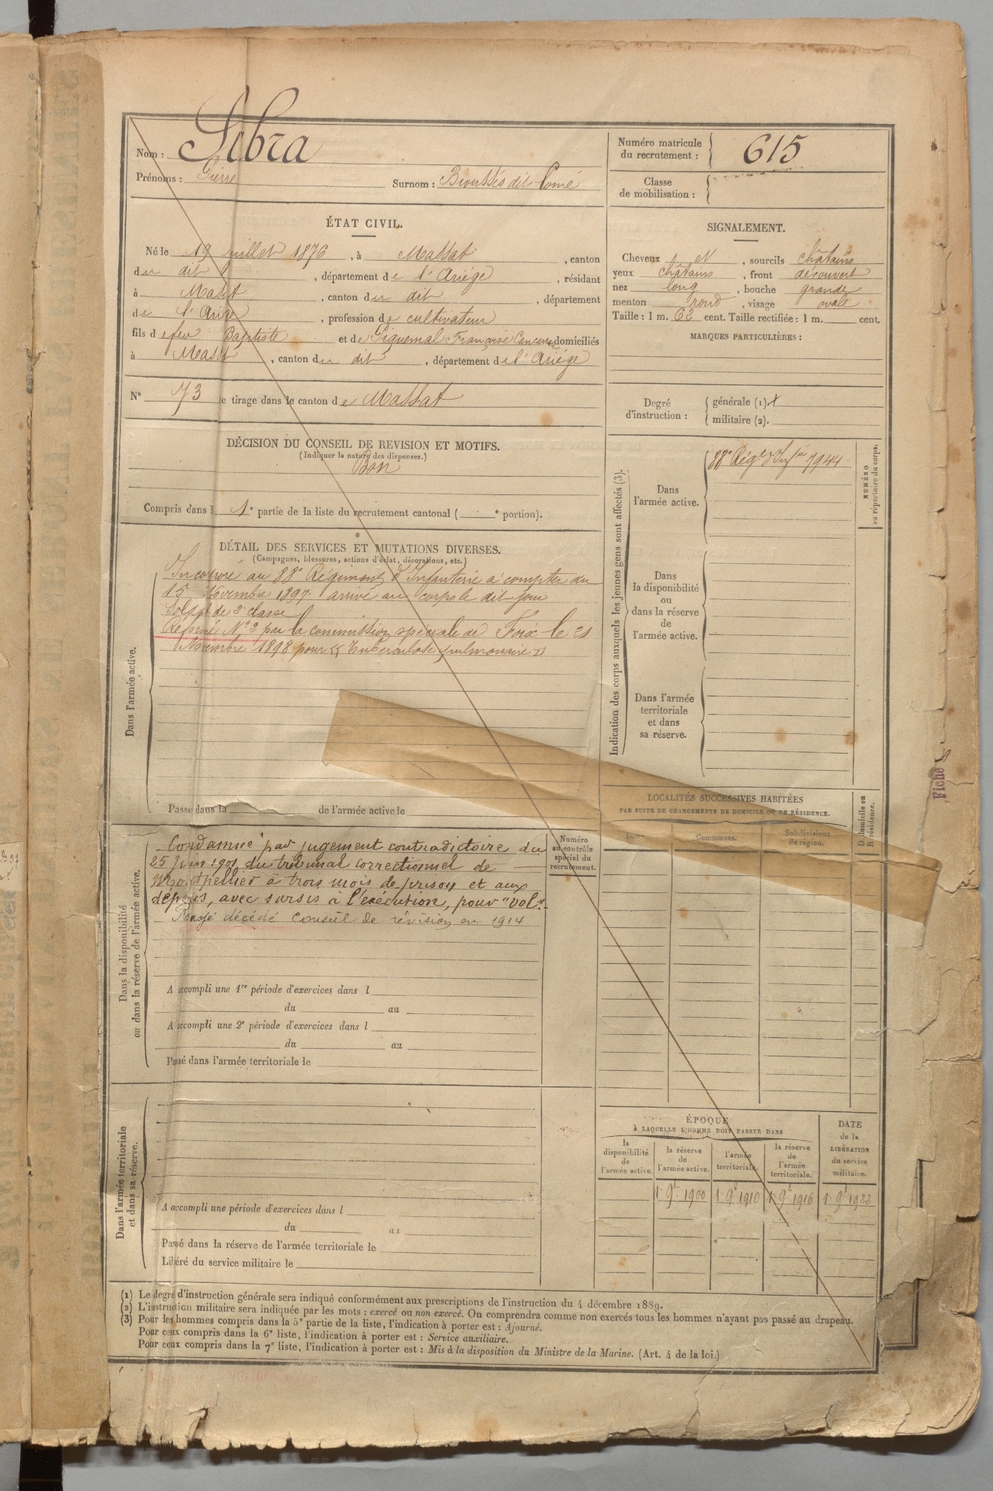 Nom : Sibra
Prénoms : Pierre Surnom : Biousses dit Comé
Numéro matricule du recrutement : 615
Classe de mobilisation :
ÉTAT CIVIL.
Né le 19 juillet 1876, à Massat, canton
du dit, département de l'Ariège, résidant
à Massat, canton du dit, département
de l'Ariège, profession de cultivateur
fils de feu Baptiste et de Piquemal Françoise domiciliés
à Massat, canton du dit, département de l'Ariège
N° 73 de tirage dans le canton de Massat
SIGNALEMENT.
Cheveux et, sourcils châtains
yeux châtains, front découvert
nez long, bouche grande
menton rond, visage ovale
Taille : 1 m. 62 cent. Taille rectifiée : 1 m. cent.
MARQUES PARTICULIÈRES :
Degré d'instruction : générale (1).
militaire (2).
DÉCISION DU CONSEIL DE REVISION ET MOTIFS.
(Indiquer la nature des dispenses.)
Bon
Compris dans l 1e partie de la liste du recrutement cantonal ( e portion).
DÉTAIL DES SERVICES ET MUTATIONS DIVERSES.
(Campagnes, blessures, actions d'éclat, décorations, etc.)
Dans l'armée active.
Incorporé au 88e Régiment d'Infanterie à compter du
15 Novembre 1897 arrivé au corps le dit jour
Soldat de 2e classe
Réformé N° 2 par la commission spéciale de Foix le 21
Novembre 1898 pour « Tuberculose pulmonaire »
Passé dans la de l'armée active le
Indication des corps auxquels les jeunes gens sont affectés (3).
Dans l'armée active.
88e Régt d'Infie 7944
NUMÉRO au répertoire du corps.
Dans la disponibilité ou dans la réserve de l'armée active.
Dans l'armée territoriale et dans sa réserve.
LOCALITÉS SUCCESSIVES HABITÉES
PAR SUITE DE CHANGEMENTS DE DOMICILE OU DE RÉSIDENCE.
Communes.
Subdivisions de région.
Domicile ou Résidence.
Fiche
Dans la disponibilité ou dans la réserve de l'armée active.
Numéro au contrôle spécial du recrutement.
Condamné par jugement contradictoire du
25 Juin 1901 du tribunal correctionnel de
Montpellier à trois mois de prison et aux
dépens, avec sursis à l'exécution, pour "vol".
Rayé décédé Conseil de révision en 1914
A accompli une 1re période d'exercices dans l
du au
A accompli une 2e période d'exercices dans l
du au
Passé dans l'armée territoriale le
Dans l'armée territoriale et dans sa réserve.
A accompli une période d'exercices dans l
du au
Passé dans la réserve de l'armée territoriale le
Libéré du service militaire le
ÉPOQUE
À LAQUELLE L'HOMME DOIT PASSER DANS
la disponibilité de l'armée active.
la réserve de l'armée active.
l'armée territoriale.
la réserve de l'armée territoriale.
DATE de la LIBÉRATION du service militaire.
1 9e 1900 1 9e 1910 1 9e 1916 1 9e 1922
(1) Le degré d'instruction générale sera indiqué conformément aux prescriptions de l'instruction du 4 décembre 1889.
(2) L'instruction militaire sera indiquée par les mots : exercé ou non exercé. On comprendra comme non exercés tous les hommes n'ayant pas passé au drapeau.
(3) Pour les hommes compris dans la 5e partie de la liste, l'indication à porter est : Ajourné.
Pour ceux compris dans la 6e liste, l'indication à porter est : Service auxiliaire.
Pour ceux compris dans la 7e liste, l'indication à porter est : Mis à la disposition du Ministre de la Marine. (Art. 4 de la loi.)